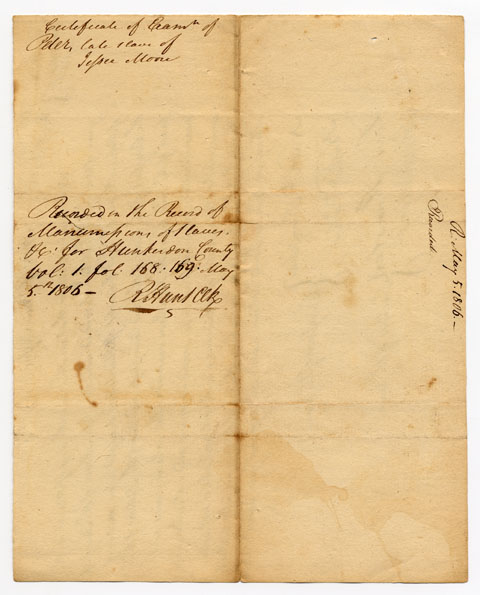 Certificate of Exam.n of
Peter, late slave of
Jesse Moore
Recorded in the Record of
Manumissions of slaves.
&c. for Hunterdon County
Vol: 1. fol: 168. 169. May
5.th 1806 –
R Hunt Clk
R. May 5. 1806. –
Recorded.